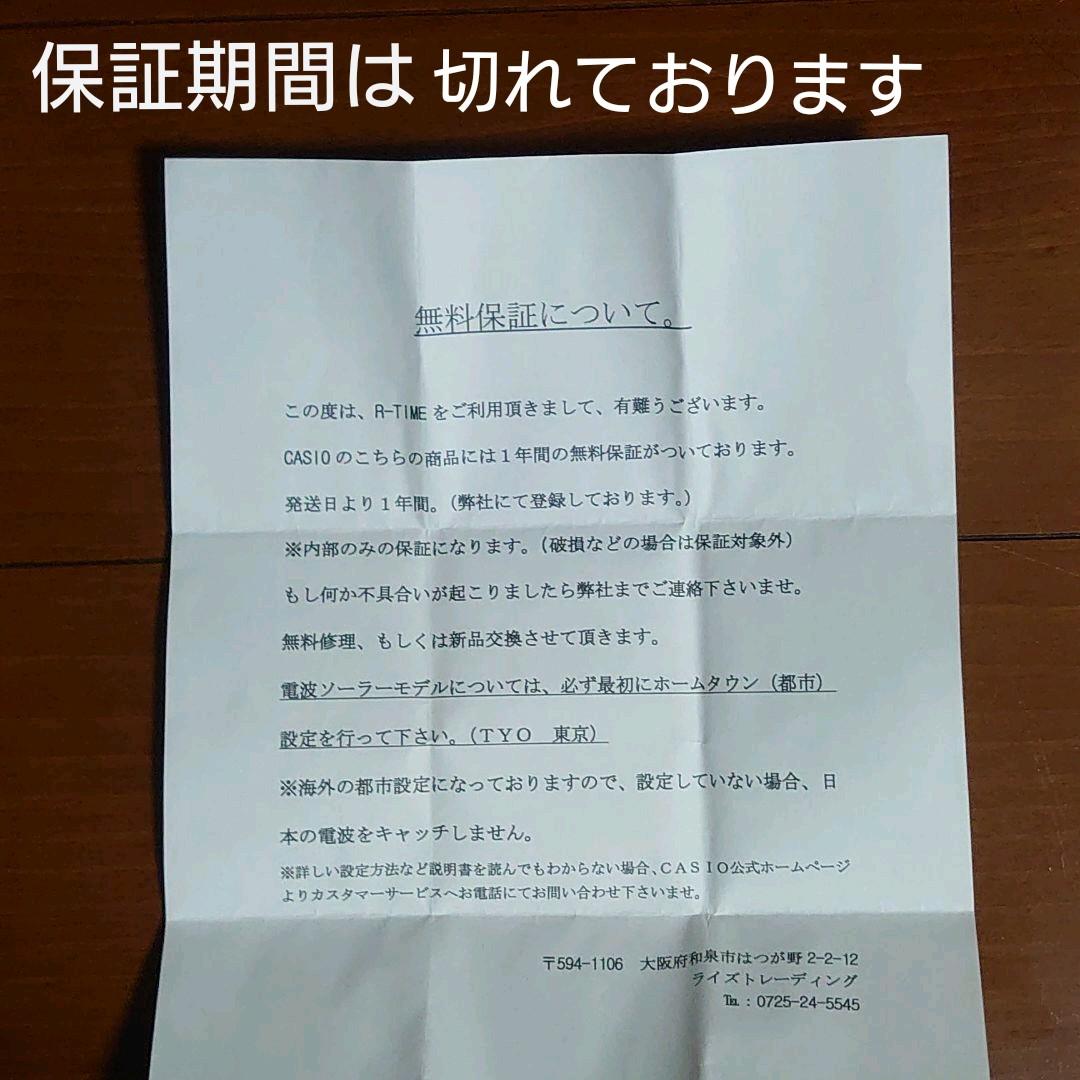 保証期間は 切れております
無料保証について。
この度は、R-TIMEをご利用頂きまして、有難うございます。
CASIOのこちらの商品には１年間の無料保証がついております。
発送日より１年間。（弊社にて登録しております。）
※内部のみの保証になります。（破損などの場合は保証対象外）
もし何か不具合いが起こりましたら弊社までご連絡下さいませ。
無料修理、もしくは新品交換させて頂きます。
電波ソーラーモデルについては、必ず最初にホームタウン（都市）
設定を行って下さい。（ＴＹＯ　東京）
※海外の都市設定になっておりますので、設定していない場合、日
本の電波をキャッチしません。
※詳しい設定方法など説明書を読んでもわからない場合、ＣＡＳＩＯ公式ホームページ
よりカスタマーサービスへお電話にてお問い合わせ下さいませ。
〒594-1106　大阪府和泉市はつが野 2-2-12
ライズトレーディング
℡：0725-24-5545